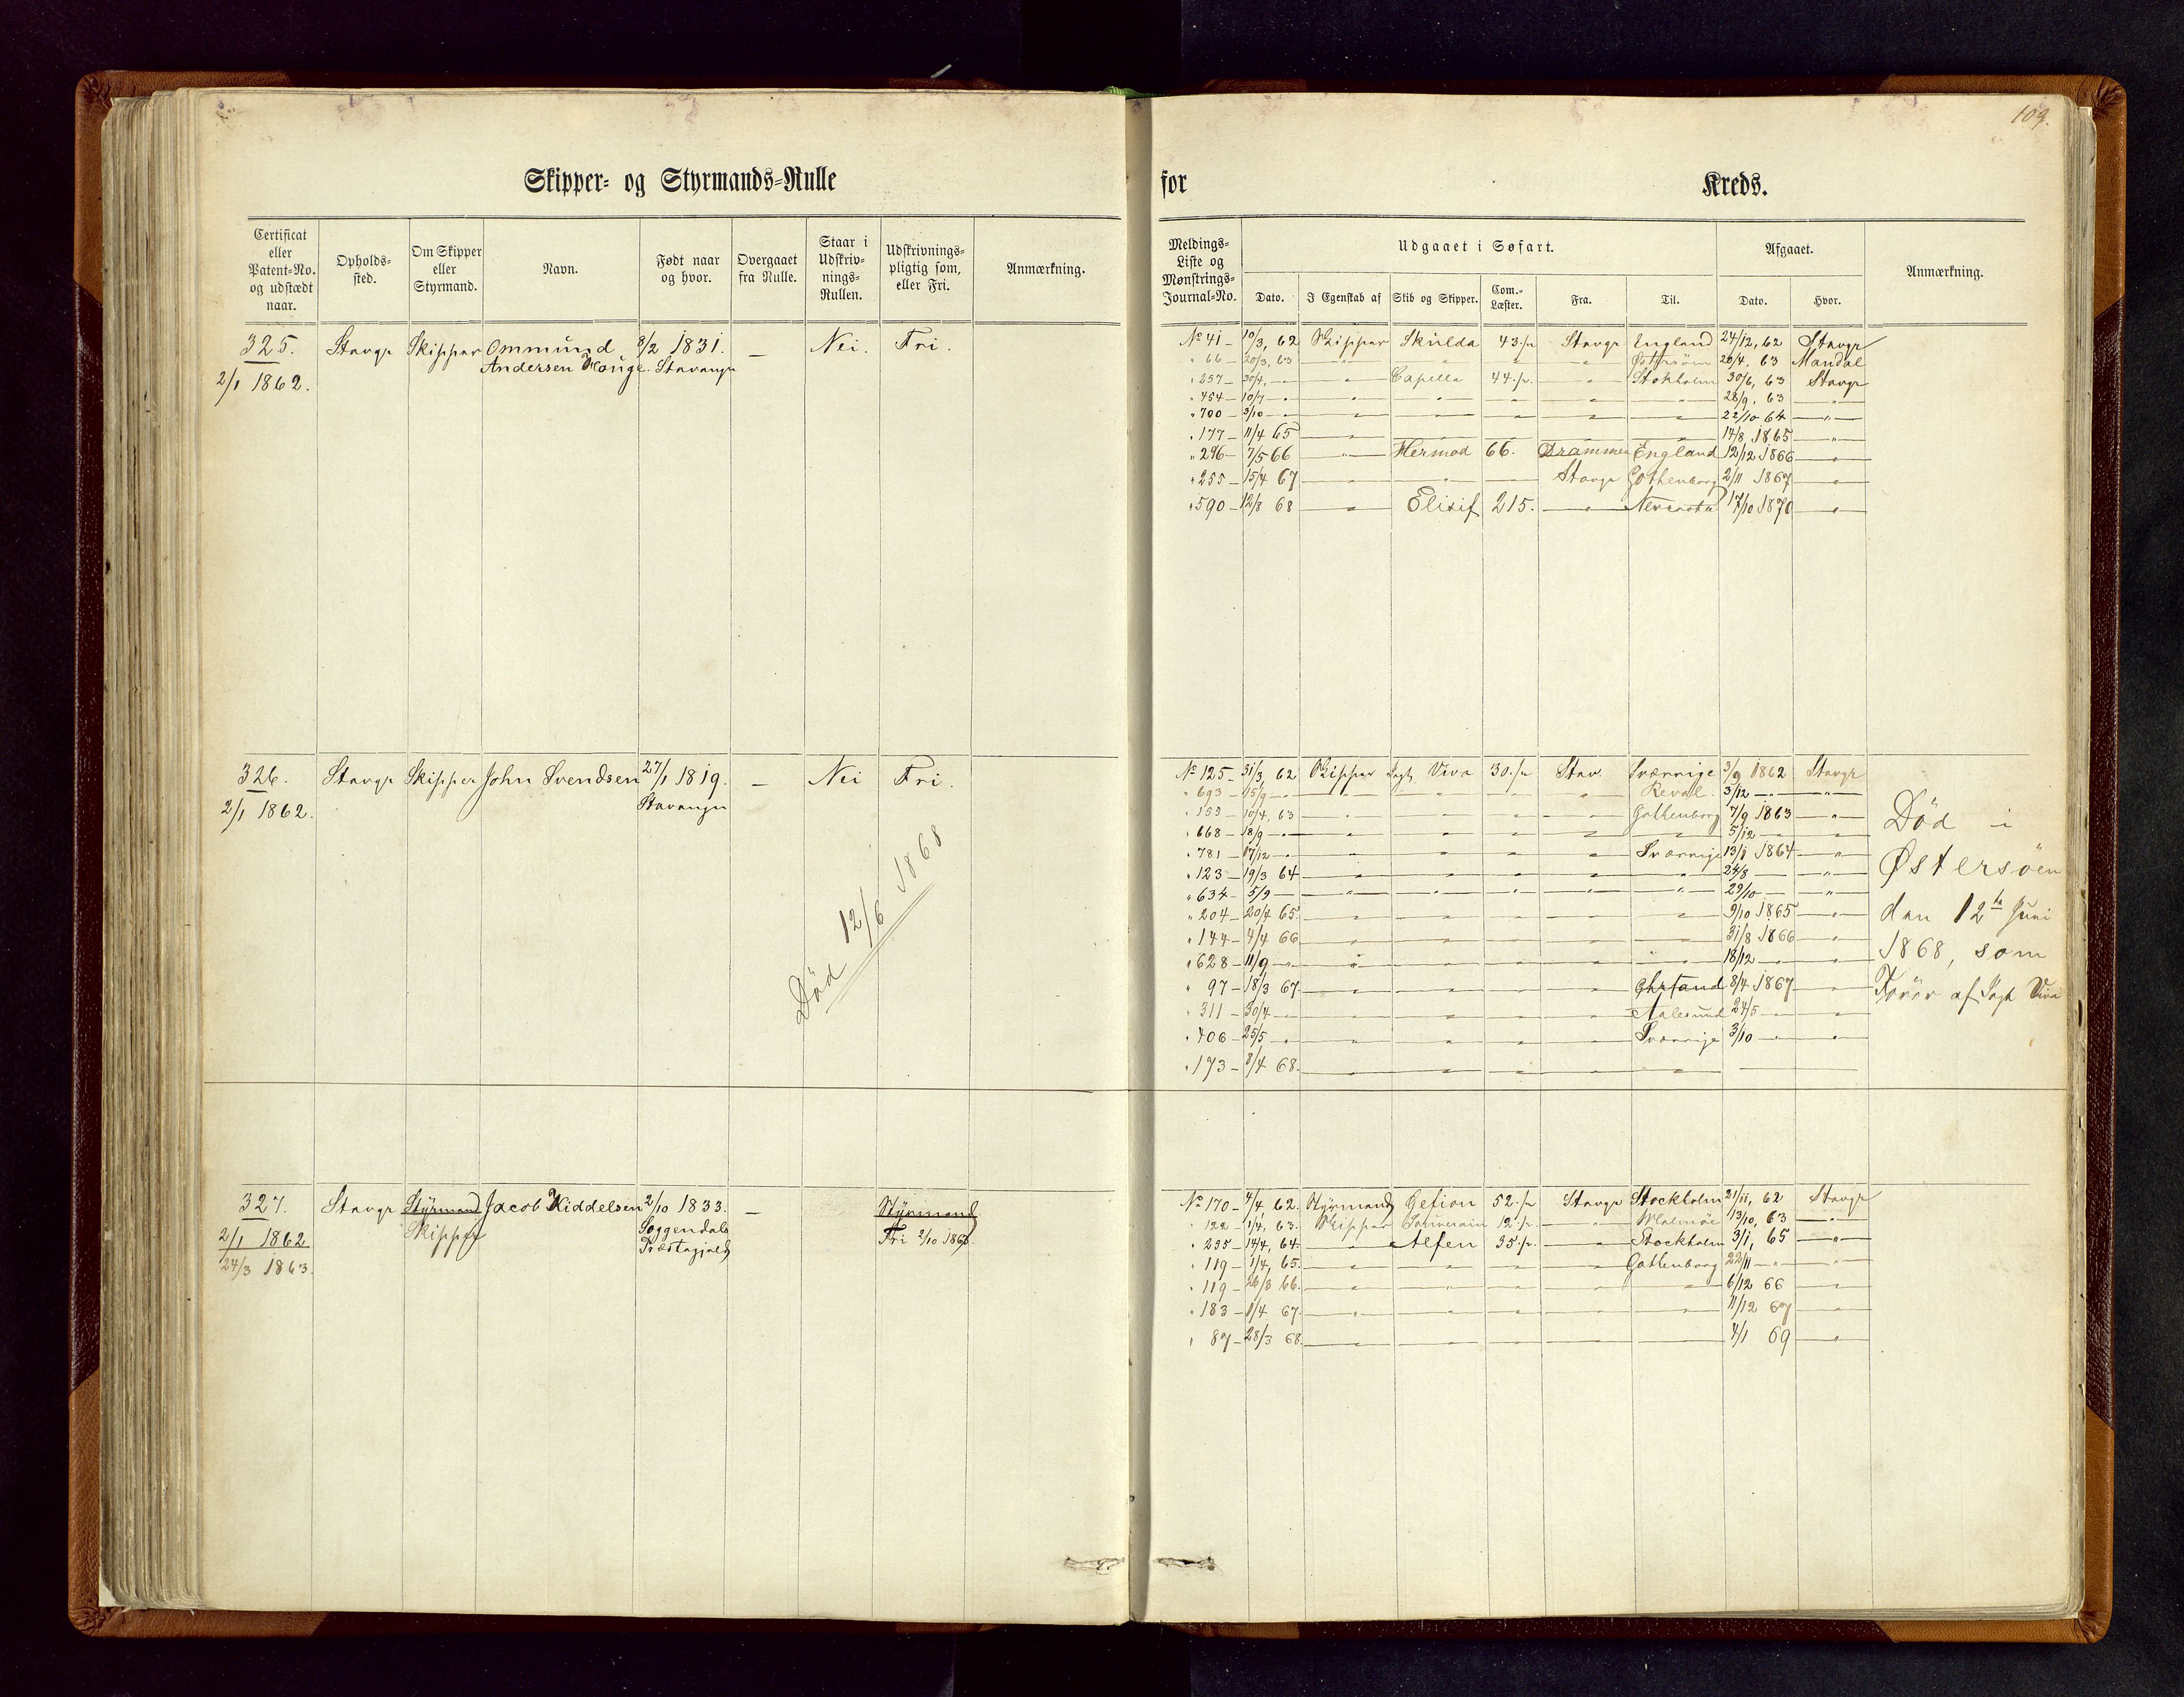 109.
Skipper- og Styrmands-Rulle for Kreds.
Certificat eller Patent-No. og udstædt naar.
Opholds-sted.
Om Skipper eller Styrmand.
Navn.
Født naar og hvor.
Overgaaet fra Rulle.
Staar i Udskriv-nings-Rullen.
Udskrivnings-pligtig som, eller Fri.
Anmærkning.
Meldings-Liste og Mønstrings-Journal-No.
Udgaaet i Søfart.
Dato.
I Egenskab af
Skib og Skipper.
Com.-Læster.
Fra.
Til.
Afgaaet.
Dato.
Hvor.
Anmærkning.
325. Stavgr Skipper Ommund 8/2 1831. — Nei. Fri.
2/1 1862. Andersen Houge. Stavanger
No 41 — 10/3, 62 Skipper Skulda 43 Stavgr England 24/12, 62 Stavgr
" 66 — 20/3, 63 " " " " Østersøen 26/4, 63 Mandal
" 257 — 30/4, — " Capella 44 " Stokholm 30/6, 63 Stavgr
" 454 — 10/7 — " " " " " 28/9, 63 "
" 700 — 3/10 — " " " " " 22/10 64 "
" 177 — 11/4 65 " " " " " 14/8 1865 "
" 296 — 7/5 66 " Hermod 66. Drammen England 12/12 1866 "
" 255 — 15/4 67 " " " Stavgr Gothenborg 2/11 1867 "
" 590 — 12/8 68 " Elisif 215. " 17/10 1870 "
326. Stavgr Skipper John Svendsen 27/1 1819. — Nei Fri.
2/1 1862. Stavanger
Død 12/6 1868
No 125 — 31/3, 62 Skipper Jagt Viva 30 Stav. Sverrige 3/9 1862 Stavgr
" 693 — 15/9 — " " " " Reval. 3/12 — "
" 155 — 10/4, 63 " " " " Gothenborg 7/9 1863 "
" 668 — 18/9 — " " " " " 5/12 — "
" 781 — 17/12 — " " " " Sverrige 13/1 1864 "
" 123 — 19/3 64 " " " " " 24/8 — "
" 634 — 5/9 — " " " " " 29/10 — "
" 204 — 20/4 65. " " " " " 9/10 1865 "
" 144 — 4/4 66 " " " " " 31/8 1866 "
" 628 — 11/9 — " " " " " 18/12 — "
" 97 — 18/3 67. " " " " Chrsand 8/4 1867 "
" 311 — 30/4 — " " " " Aalesund 24/5 — "
" 406 — 25/5 — " " " " Sverrige 3/10 — "
" 173 — 8/4 68. " " " " " —
Død i
Østersöen
den 12te Juni
1868, som
Förer af Jagt Viva
327. Stavgr Styrmand Jacob Kiddelsen 2/10 1833. — Styrmand
2/1 1862 Skipper Soggendals Fri 2/10 186
24/3 1863. Præstegjeld
No 170 — 4/4 62. Styrmand Gefion 52 Stavgr Stockholm 21/11, 62 Stavgr
" 122 — 1/4, 63. Skipper Souverain 12 " Malmöe 13/10, 63 "
" 235 — 14/4, 64. " Alfen 35 " Stockholm 3/1, 65 "
" 119 — 1/4, 65. " " " " Gothenborg 22/11 — "
" 119 — 26/3 66. " " " " " 6/12 66 "
" 183 — 1/4 67. " " " " " 11/12 67 "
" 87 — 28/3 68. " " " " " 4/1 69 "